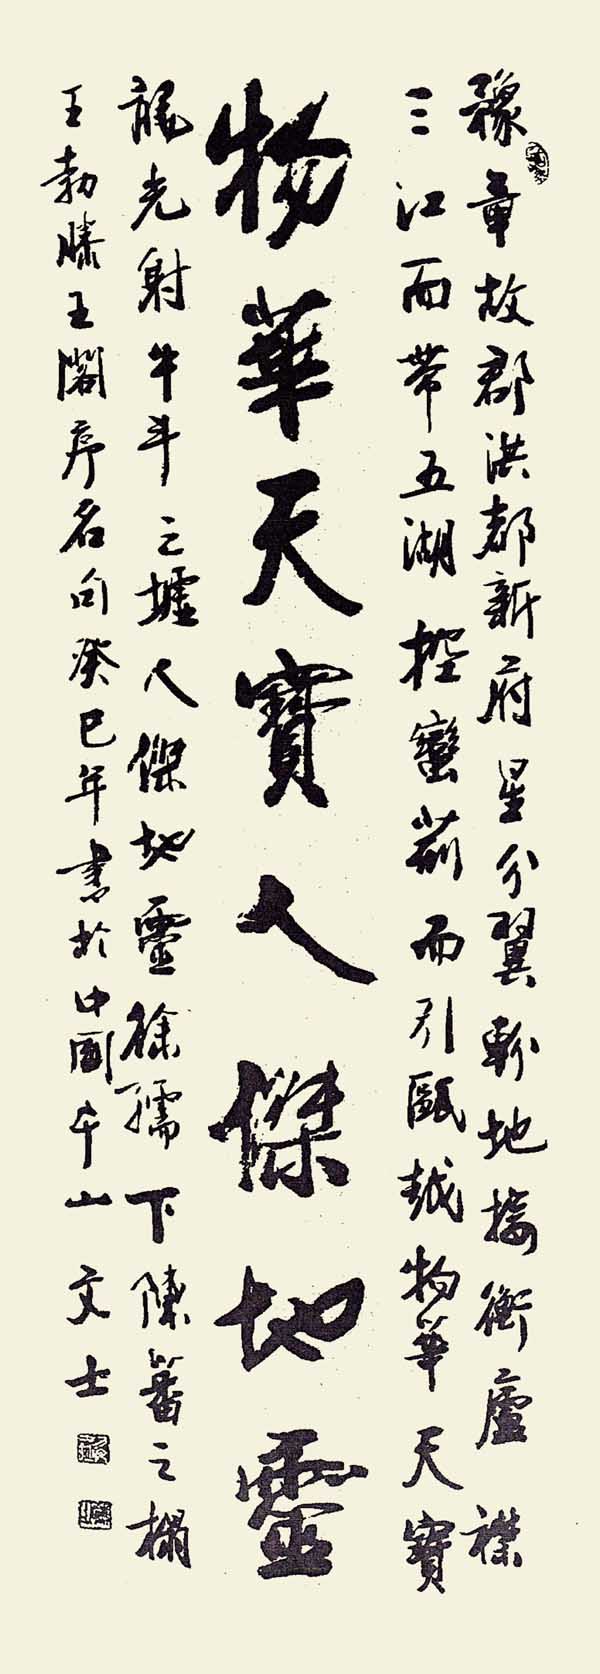 豫章故郡洪都新府星分翼軫地接衡廬襟
三江而帶五湖控蠻荊而引甌越物華天寶
物華天寶人傑地靈
龍光射牛斗之墟人傑地靈徐孺下陳蕃之榻
王勃滕王閣序名句癸巳年書於中國千山文士